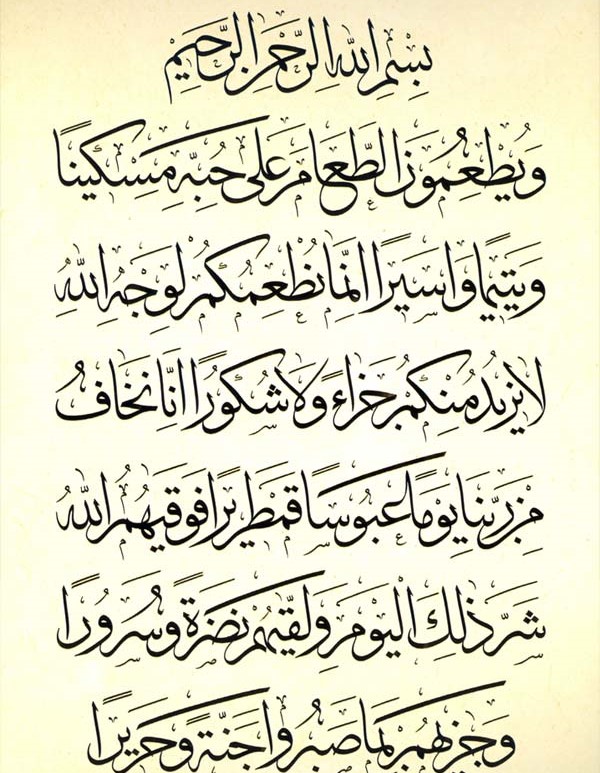 بِسْمِ اللهِ الرَّحْمٰنِ الرَّحِيْمِ
وَيُطْعِمُوْنَ الطَّعَامَ عَلٰى حُبِّهٖ مِسْكِيْنًا
وَيَتِيْمًا وَاَسِيْرًا اِنَّمَا نُطْعِمُكُمْ لِوَجْهِ اللهِ
لَا نُرِيْدُ مِنْكُمْ جَزَاءً وَلَا شُكُوْرًا اِنَّا نَخَافُ
مِنْ رَبِّنَا يَوْمًا عَبُوْسًا قَمْطَرِيْرًا فَوَقٰيهُمُ اللهُ
شَرَّ ذٰلِكَ الْيَوْمِ وَلَقّٰيهُمْ نَضْرَةً وَسُرُوْرًا
وَجَزٰيهُمْ بِمَا صَبَرُوْا جَنَّةً وَحَرِيْرًا